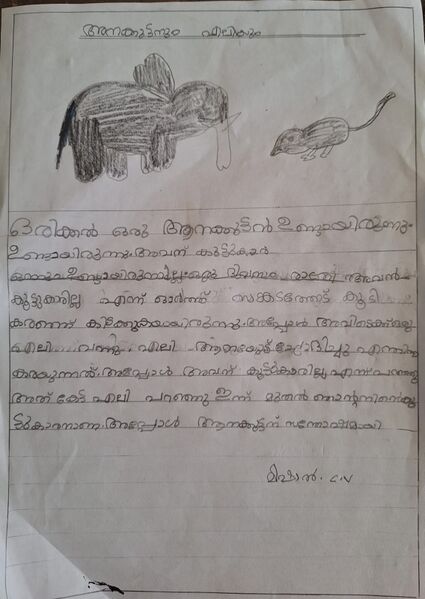 ആനക്കുട്ടനും എലിയും
ഒരിക്കൽ ഒരു ആനക്കുട്ടൻ ഉണ്ടായിരുന്നു.
ഉണ്ടായിരുന്നു. അവന് കൂട്ടുകാർ
ഒന്നും ഉണ്ടായിരുന്നില്ല. ഒരു ദിവസം രാത്രി അവൻ
കൂട്ടുക്കാരില്ല എന്ന് ഓർത്ത് സങ്കടത്തോട് കൂടി
കരഞ്ഞ് കിടക്കുകയായിരുന്നു. അപ്പോൾ അവിടെക്ക് ഒരു
എലി വന്നു. എലി ആനയോട് ചോദിച്ചു എന്തിനാ
കരയുന്നത്. അപ്പോൾ അവന് കൂട്ടുകാരില്ല എന്ന് പറഞ്ഞു
അത് കേട്ട എലി പറഞ്ഞു ഇന്ന് മുതൽ ഞാൻ നിന്റെ കൂ
ട്ടുകാരനാണ്. അപ്പോൾ ആനക്കുട്ടന് സന്തോഷമായി
മിഷാൽ. C.V